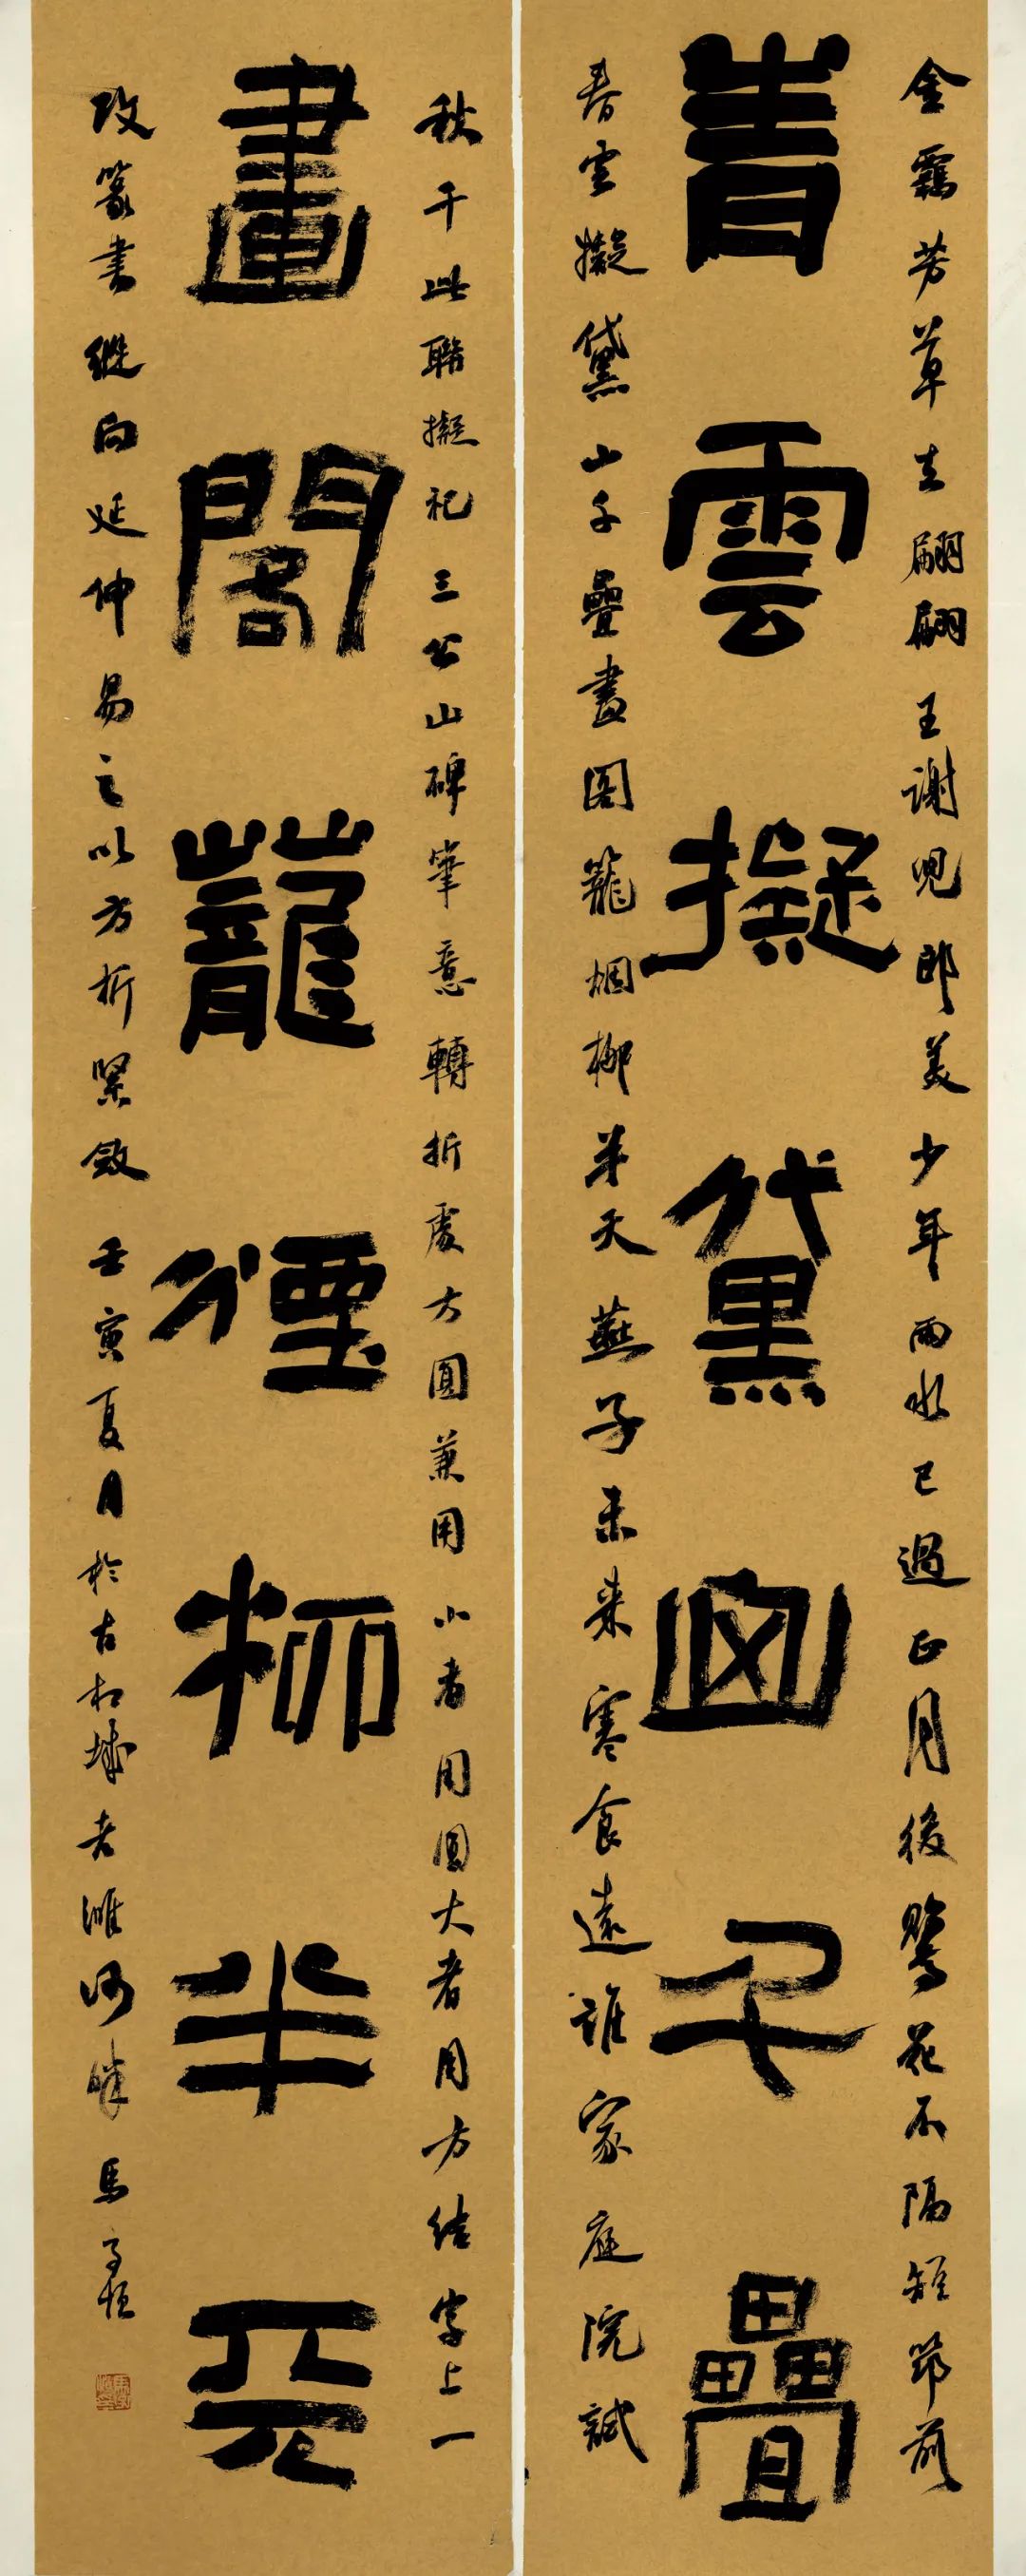 金羈芳草立翩翩王謝兒郎美少年雨水已過正月後鶯花不隔短笻前
春雲擬黛山千疊
春雲擬黛山千疊畫閣籠烟柳半天燕子未来寒食遠誰家庭院試
秋千此聯擬祀三公山碑筆意轉折處方圓兼用小者用圓大者用方结字上一
畫閣蘢煙柳半天
改篆書縱向延伸易之以方折緊斂壬寅夏月於古相城老濉河畔馬恒